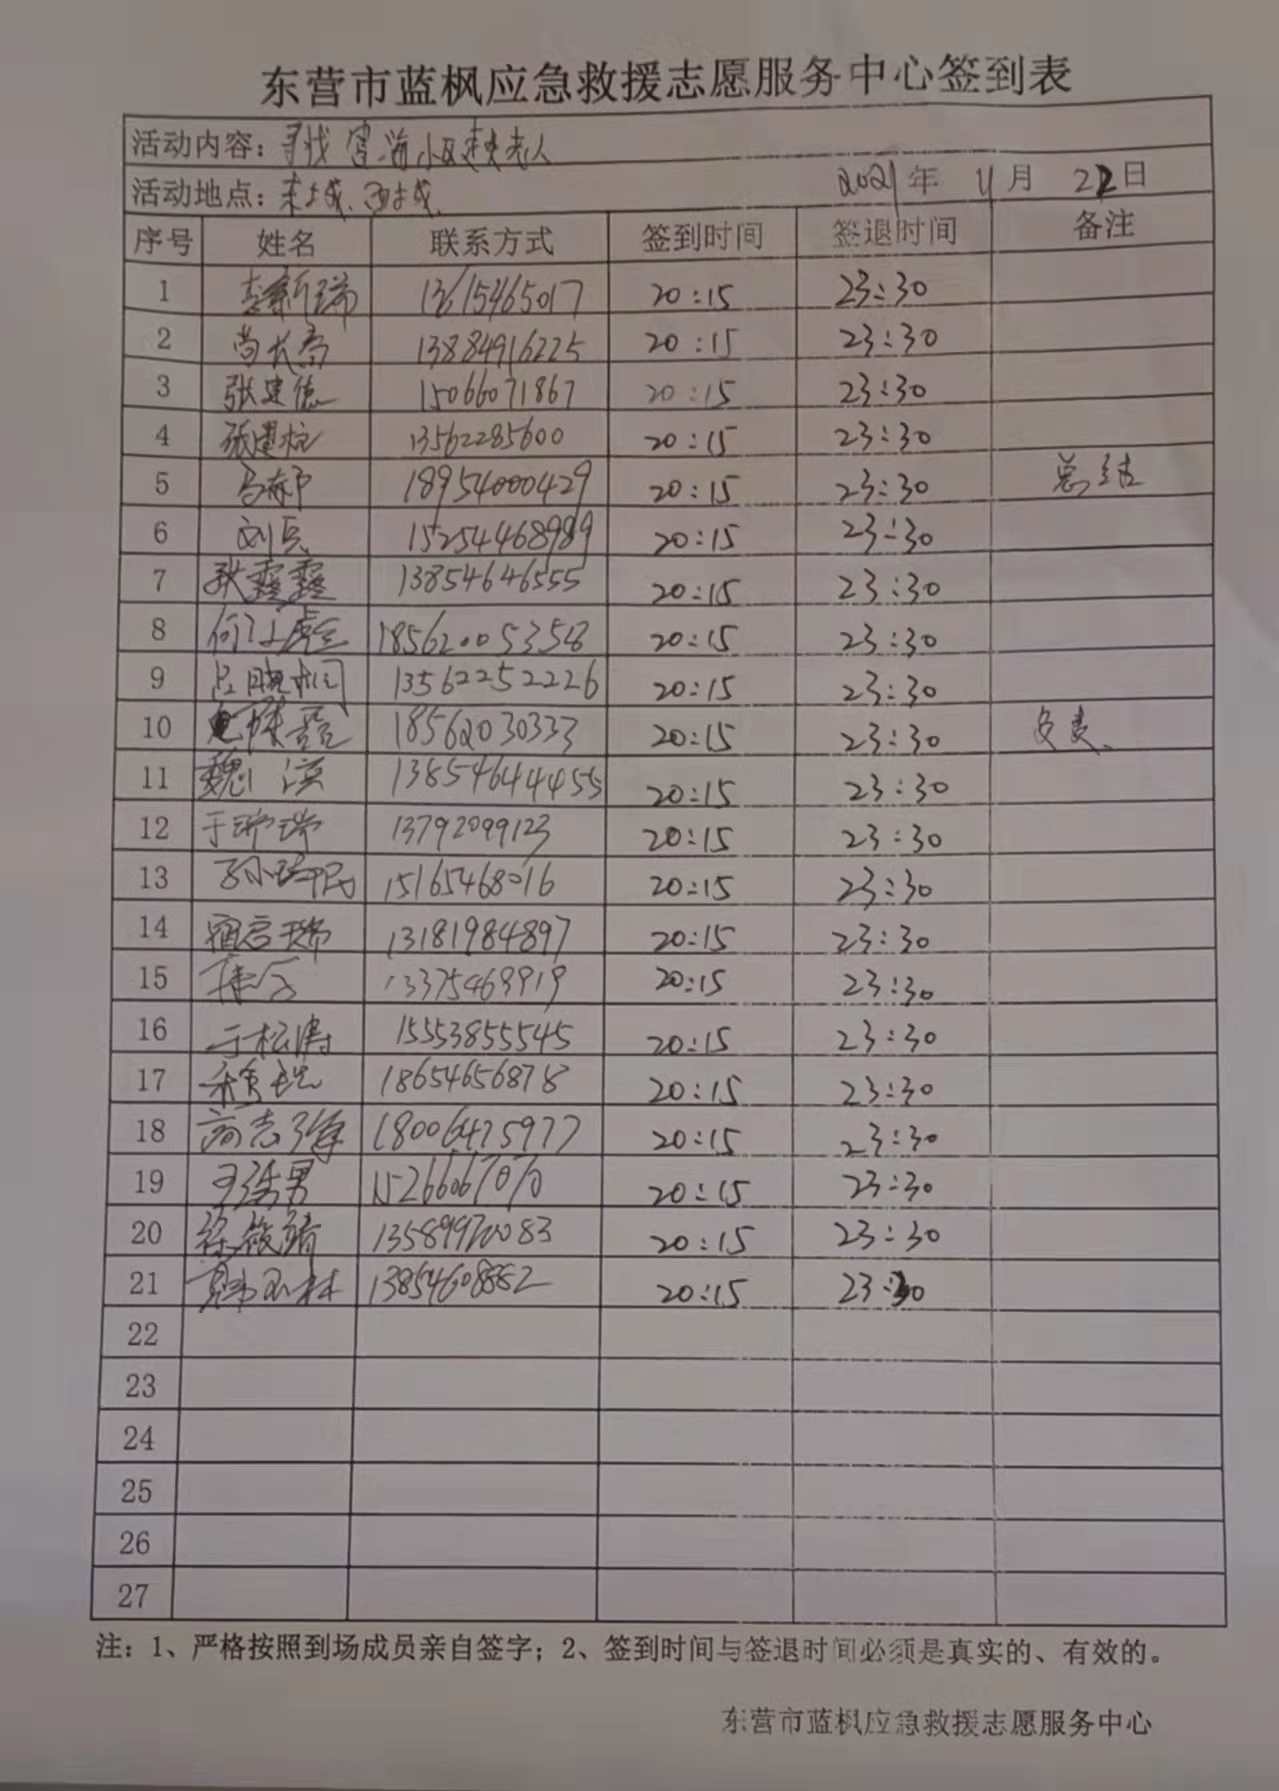 东营市蓝枫应急救援志愿服务中心签到表
活动内容：寻找 小区走失老人
活动地点：东城、西城 2021年 11月 22日
序号 姓名 联系方式 签到时间 签退时间 备注
1 13615465017 20:15 23:30
2 尚长青 13884916225 20:15 23:30
3 张建德 15066071867 20:15 23:30
4 13562285600 20:15 23:30
5 18954000429 20:15 23:30 总结
6 刘兵 15254468989 20:15 23:30
7 张露露 13854646555 20:15 23:30
8 18562005358 20:15 23:30
9 13562252226 20:15 23:30
10 18562030333 20:15 23:30 发表
11 魏 滨 13854644455 20:15 23:30
12 于瑞瑞 13792099123 20:15 23:30
13 15165468016 20:15 23:30
14 13181984897 20:15 23:30
15 20:15 23:30
16 于松涛 15553855545 20:15 23:30
17 18654656878 20:15 23:30
18 高志强 18006475977 20:15 23:30
19 王浩男 15266067070 20:15 23:30
20 徐筱靖 13589970083 20:15 23:30
21 韩玉林 13854608882 20:15 23:30
22
23
24
25
26
27
注：1、严格按照到场成员亲自签字；2、签到时间与签退时间必须是真实的、有效的。
东营市蓝枫应急救援志愿服务中心